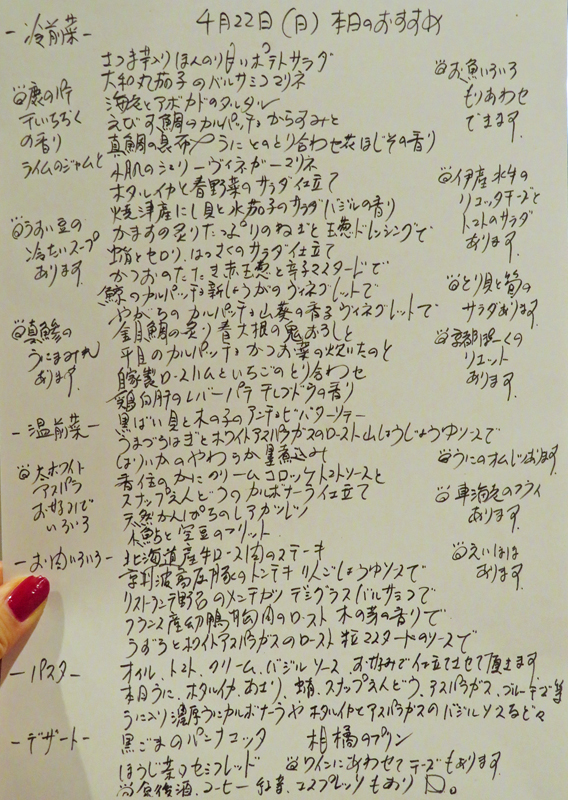 4月22日(日)本日のおすすめ
-冷前菜-
さつま芋入りほんのり甘いポテトサラダ
大和丸茄子のバルサミコマリネ
海老とアボカドのタルタル
えびす鯛のカルパッチョからすみと
真鯛の昆布〆うにとのとり合わせ花ほじその香り
小肌のシェリーヴィネガーマリネ
ホタルイカと春野菜のサラダ仕立て
焼津産にし貝と水茄子のサラダバジルの香り
かますの炙りたっぷりのねぎと玉葱ドレンシングで
蛸とセロリ、はっさくのサラダ仕立て
かつおのたたき赤玉葱と辛子マスタードで
鯨のカルパッチョ新しょうがのヴィネグレットで
やがらのカルパッチョ山葵の香るヴィネグレットで
金目鯛の炙り春大根の鬼おろしと
平目のカルパッチョかつお菜の炊いたのと
自家製ローストハムといちごのとり合わせ
鶏白肝のレバーパテ干しブドウの香り
黒ばい貝と木の子のアンチョビバターソテー
鹿のパテ
干いちぢくの香り
ライムのジャムと
うすい豆の
冷たいスープ
あります
真鯵の
うにまみれ
あります
お魚いろいろ
もりあわせ
できます
伊産水牛の
リコッタチーズと
トマトのサラダ
あります
とり貝と筍の
サラダあります
リエット
あります
-温前菜-
うまづらはぎとホワイトアスパラガスのロースト山しょうじょうゆソースで
ほうりいかのやわらか墨煮込み
香住のかにクリームコロッケトマトソースと
スナップえんどうのカルボナーラ仕立て
天然かんぱちのレアカツレツ
稚鮎と空豆のフリット
太ホワイト
アスパラ
お好みで
いろいろ
うにのオムレツあります
車海老のフライ
あります
えいひれ
あります
-お肉いろいろ-
北海道産牛ロース肉のステーキ
京丹波高原豚のトンテキりんごしょうゆソースで
リストランテ野呂のメンチカツデミグラスバルサミコで
フランス産幼鴨胸肉のロースト木の芽の香りで
うずらとホワイトアスパラガスのロースト粒マスタードのソースで
-パスタ-
オイル、トマト、クリーム、バジルソース、お好みで仕立てさせて頂きます
本日うに、ホタルイカ、あさり、蛸、スナップえんどう、アスパラガス、ブルーチーズ等
うに入り濃厚うにカルボナーラやホタルイカとアスパラガスのバジルソースなど々
-デザート-
黒ごまのパンナコッタ 柑橘のプリン
ほうじ茶のセミフレッド ワインにあわせてチーズもあります
食後酒、コーヒー、紅茶、エスプレッソもあり〼。